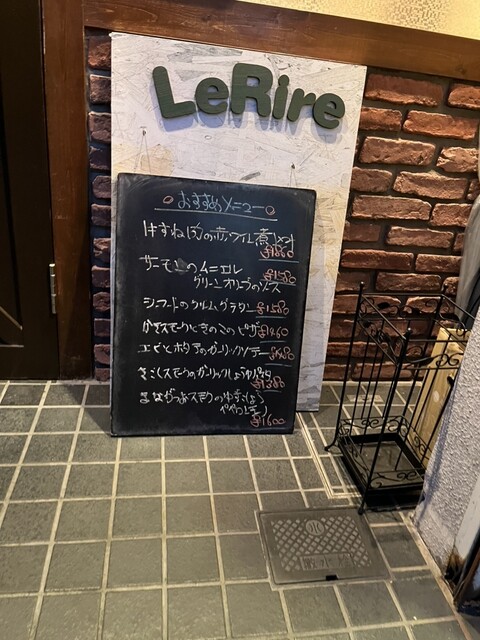 LeRire
おすすめメニュー
牛すね肉の赤ワイン煮込み
サーモンのムニエル ¥1580
グリーンオリーブのソース
シーフードのクリームグラタン ¥1580
かきスモークときのこのピザ ¥1460
エビとホタテのガーリックソテー
きのこ のガーリックしょうゆ
¥1380
まながつお のゆずこしょう
ペペロンチーノ
¥1600